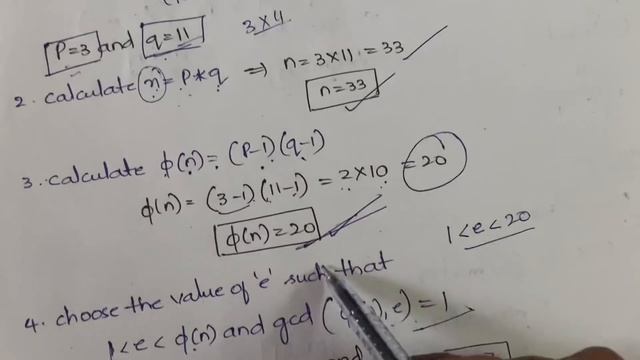 3x4.
P=3 and q=11
2. calculate n = P*q ⇒ n = 3x11 = 33
n=33
3. calculate φ(n) = (P-1)(q-1)
φ(n) = (3-1)(11-1) = 2x10 = 20
φ(n)=20
1<e<20
4. choose the value of 'e' such that
1<e<φ(n) and gcd ( ), e) = 1